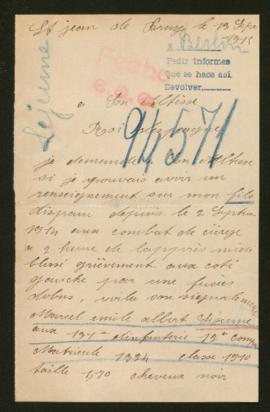 St jean de
le 13 Sept
1915
a Berlin
Pedir informes
que se hace así.
Devolver.
Lejeune
a Son Altesse
94571
je demanderai a son altesse
si je pourrais avoir un
renseignement sur mon fils
disparu depuis le 2 Septem
1914 aux combat de
a 2 heure de
blessé grièvement aux coté
gauche par une
dobus, voila son signalement
Marcel emile albert Lejeune
aux 131e dinfanterie 12e comp
Matricule 1324 classe 1910
taille 1,70 cheveux noir